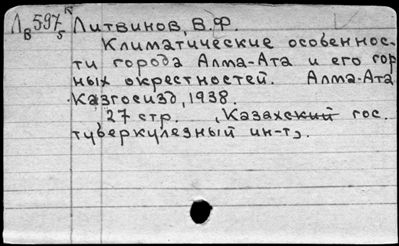 Л 597 Литвинов, В.Ф.
В 5
Климатические особеннос-
ти города Алма-Ата и его гор
ных окрестностей. Алма-Ата
Казгосизд, 1938.
27 стр. (Казахский гос.
туберкулезный ин-т).